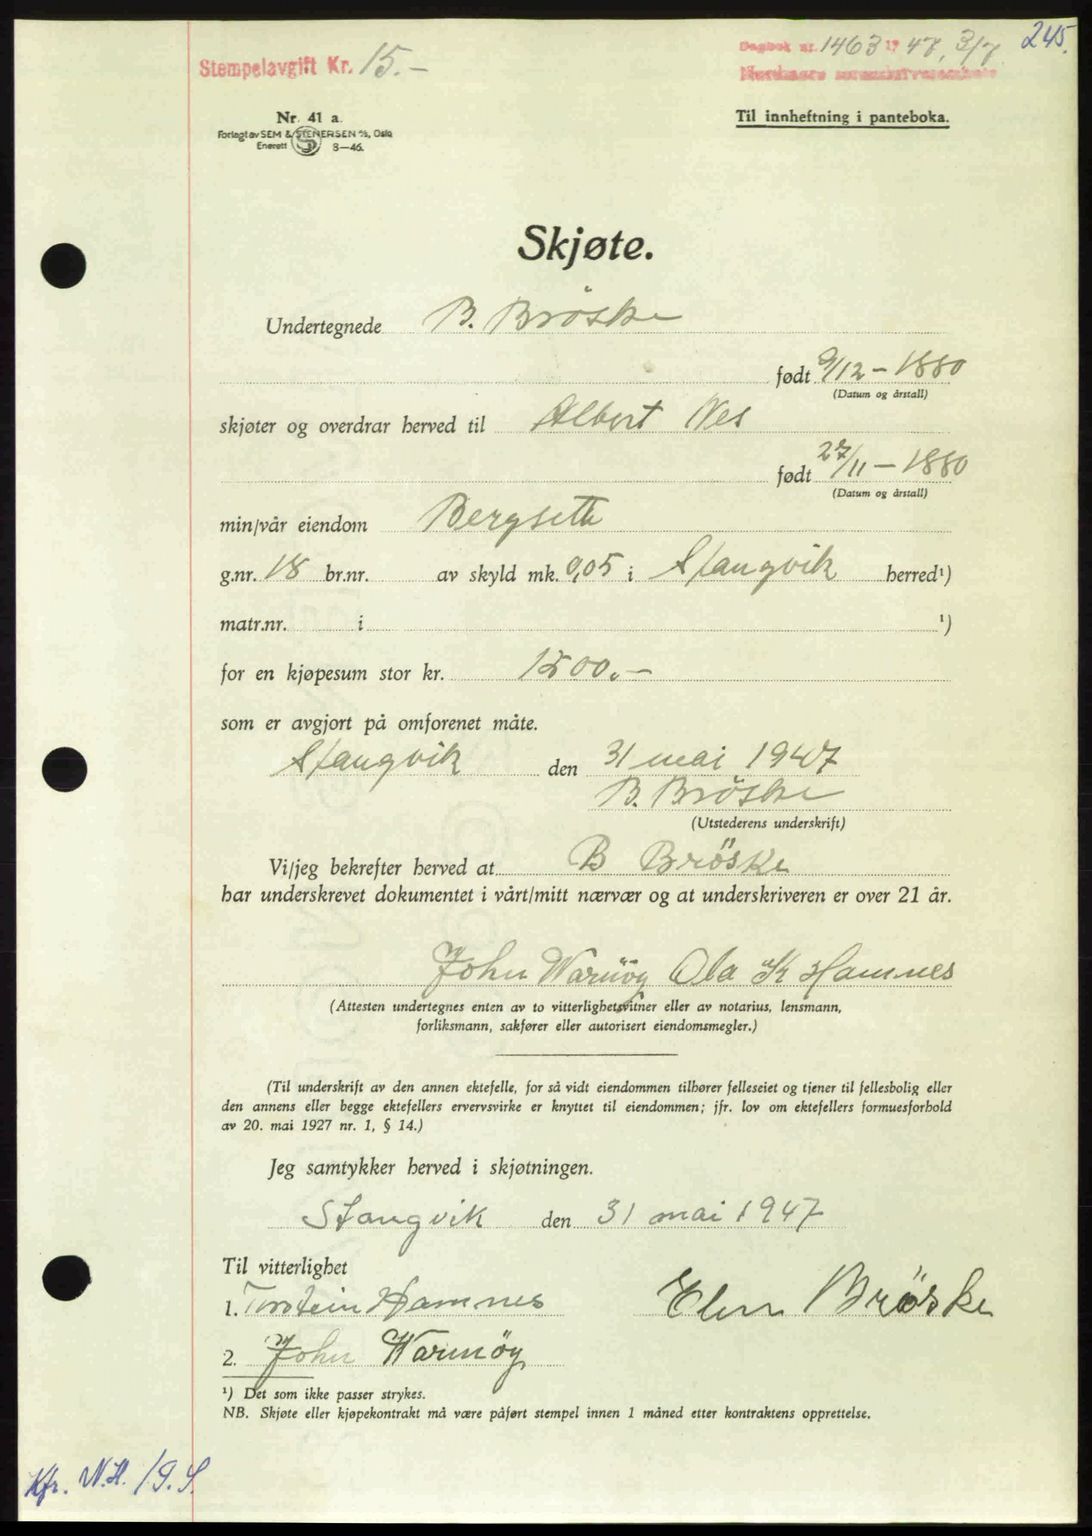 245.
Stempelavgift Kr. 15.-
Dagbok nr. 1463 1947, 3/7
Nordmøre sorenskriverembete
Nr. 41 a.
Forlagt av SEM & STENERSEN A/S, Oslo
Enerett S 8—46.
Til innheftning i panteboka.
Skjøte.
Undertegnede B. Bröske
født 9/12 - 1880
(Datum og årstall)
skjøter og overdrar herved til Albert Nes
født 27/11 - 1880
(Datum og årstall)
min/vår eiendom Bergseth
g.nr. 18 br.nr. av skyld mk. 0,05 i Stangvik herred¹)
matr.nr. i ¹)
for en kjøpesum stor kr. 1500.-
som er avgjort på omforenet måte.
Stangvik den 31 mai 1947
B. Bröske
(Utstederens underskrift)
Vi/jeg bekrefter herved at B Bröske
har underskrevet dokumentet i vårt/mitt nærvær og at underskriveren er over 21 år.
John Warmöy Ola K Hamnes
(Attesten undertegnes enten av to vitterlighetsvitner eller av notarius, lensmann,
forliksmann, sakfører eller autorisert eiendomsmegler.)
(Til underskrift av den annen ektefelle, for så vidt eiendommen tilhører felleseiet og tjener til fellesbolig eller
den annens eller begge ektefellers ervervsvirke er knyttet til eiendommen; jfr. lov om ektefellers formuesforhold
av 20. mai 1927 nr. 1, § 14.)
Jeg samtykker herved i skjøtningen.
Stangvik den 31 mai 1947
Til vitterlighet
1. Torstein Hamnes
Elen Bröske
2. John Warmöy
¹) Det som ikke passer strykes.
NB. Skjøte eller kjøpekontrakt må være påført stempel innen 1 måned etter kontraktens opprettelse.
Kfr. N.H.